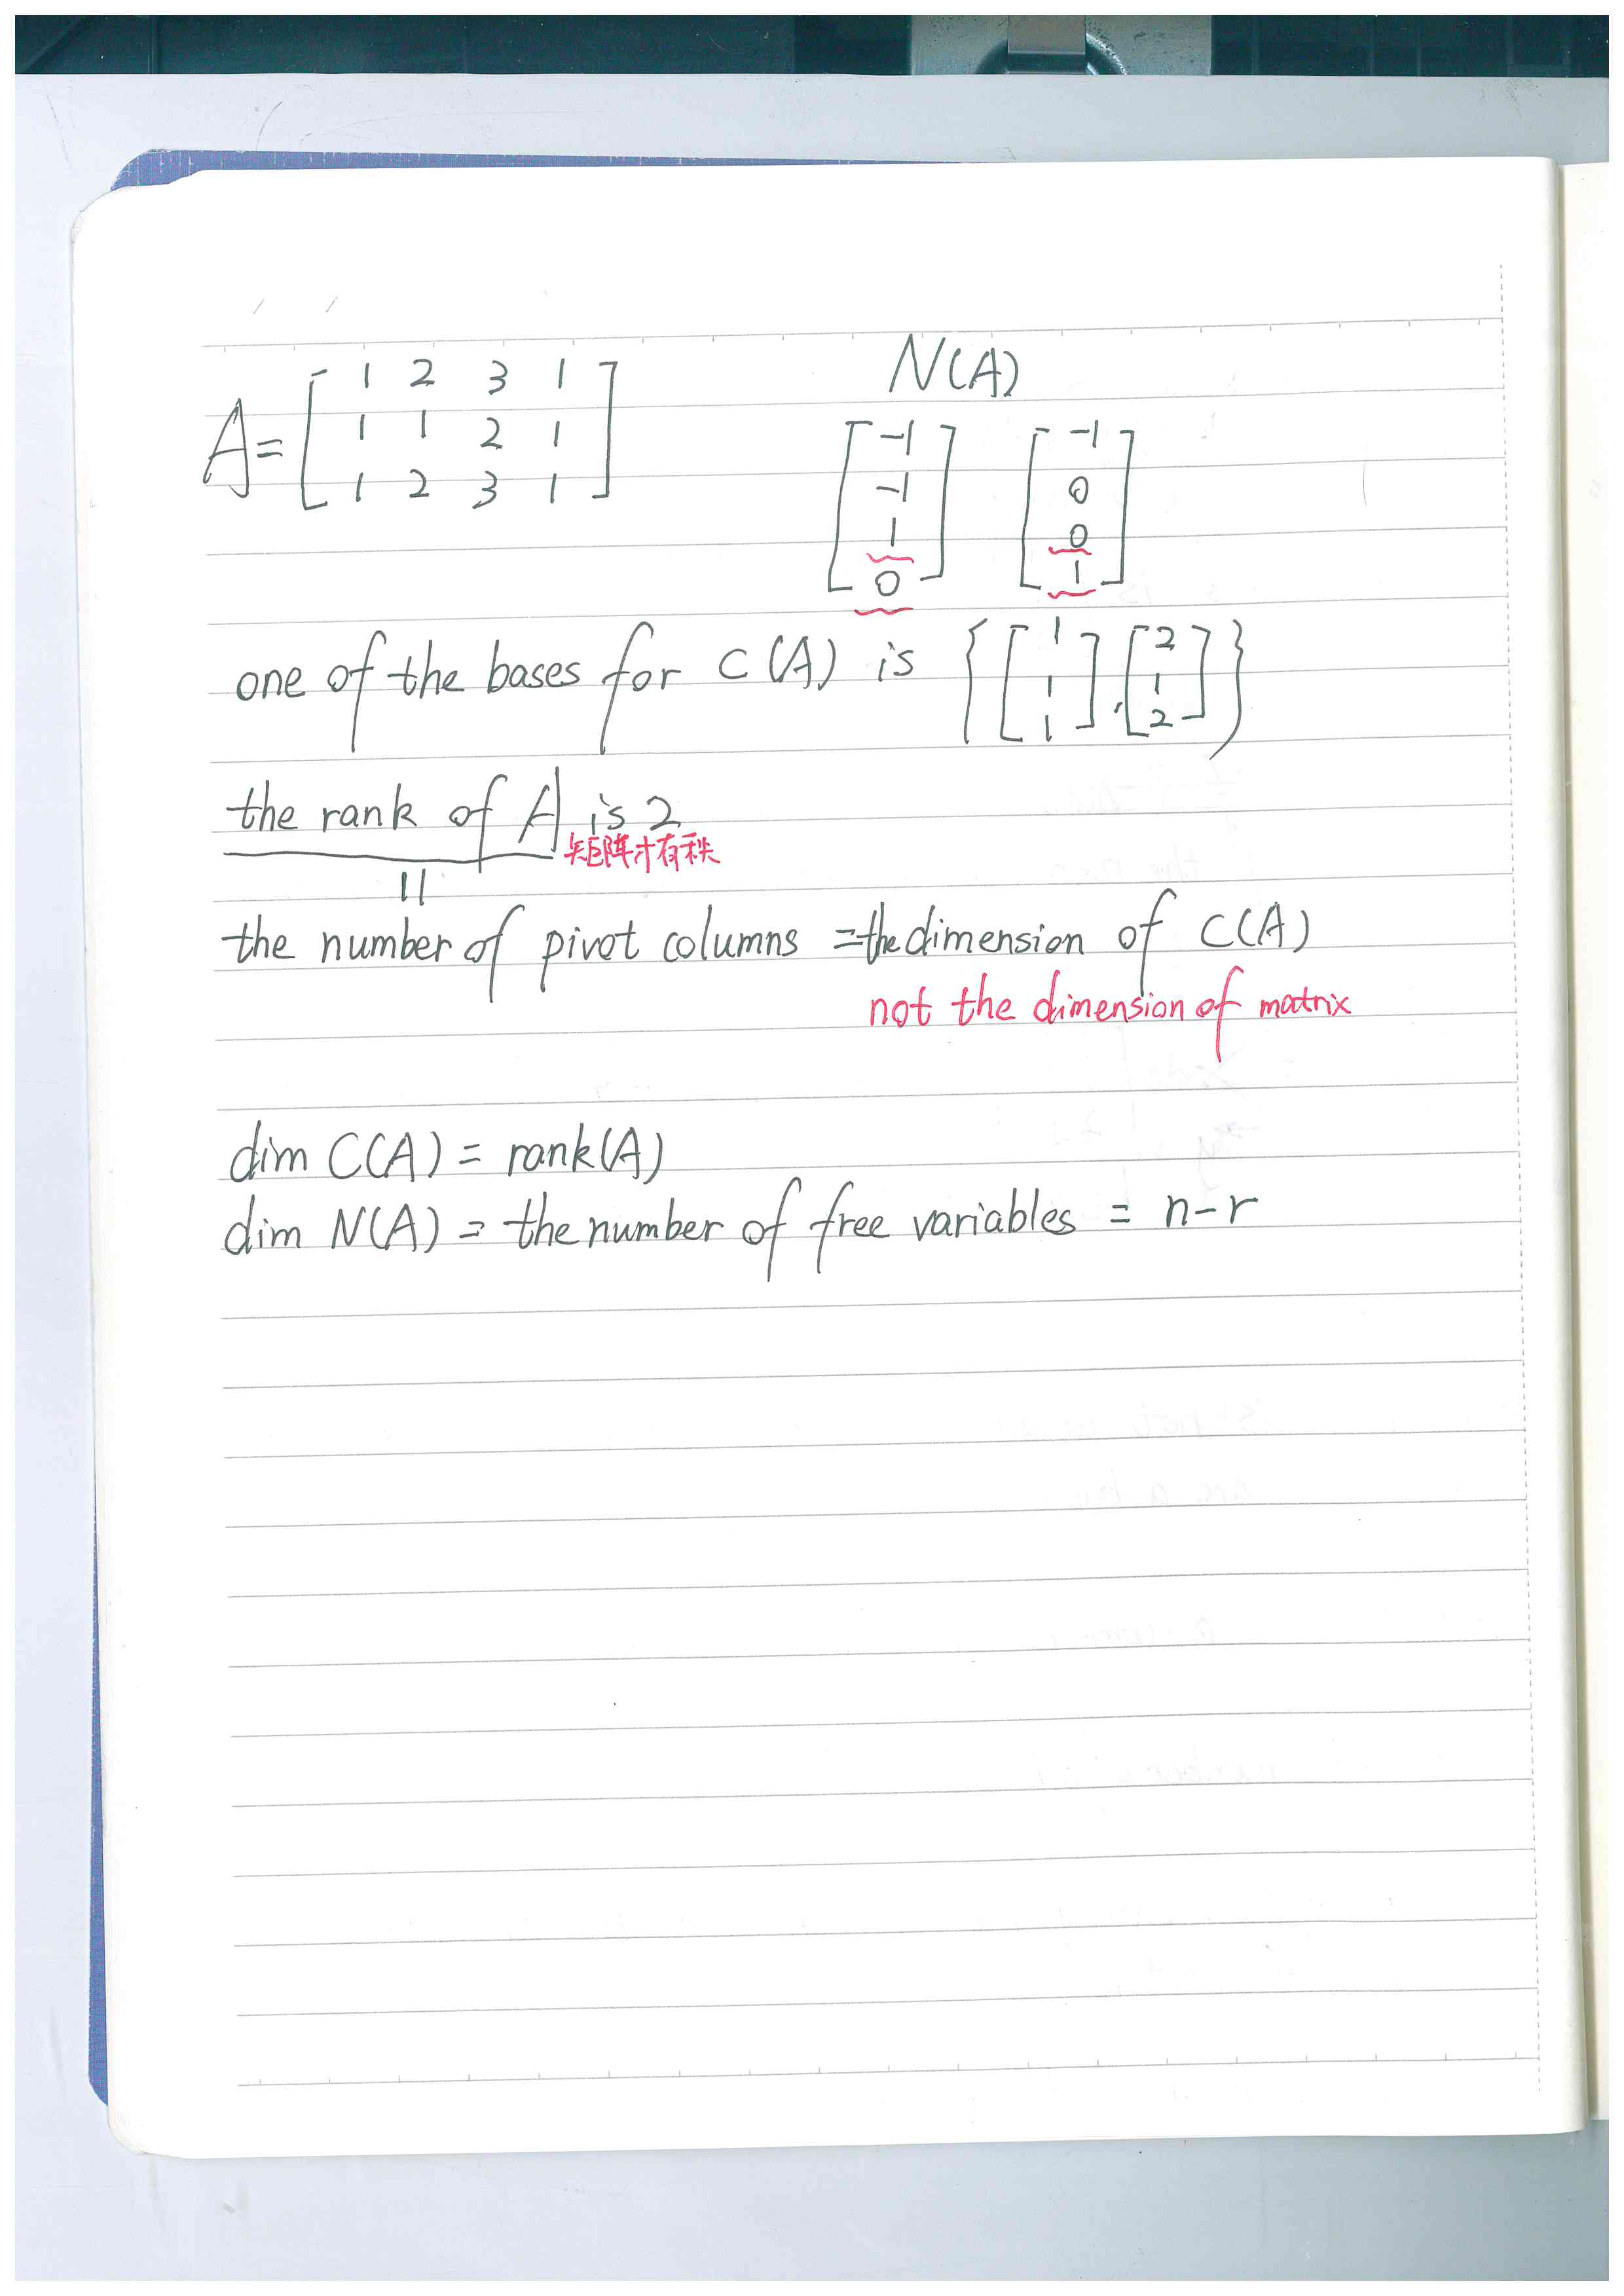 A = [ 1 2 3 1 N(A)
1 1 2 1
1 2 3 1 ]
[ -1 -1 1 0 ] [ -1 0 0 1 ]
one of the bases for C(A) is { [ 1 1 1 ], [ 2 1 2 ] }
the rank of A is 2
矩阵才有秩
||
the number of pivot columns = the dimension of C(A)
not the dimension of matrix
dim C(A) = rank(A)
dim N(A) = the number of free variables = n-r